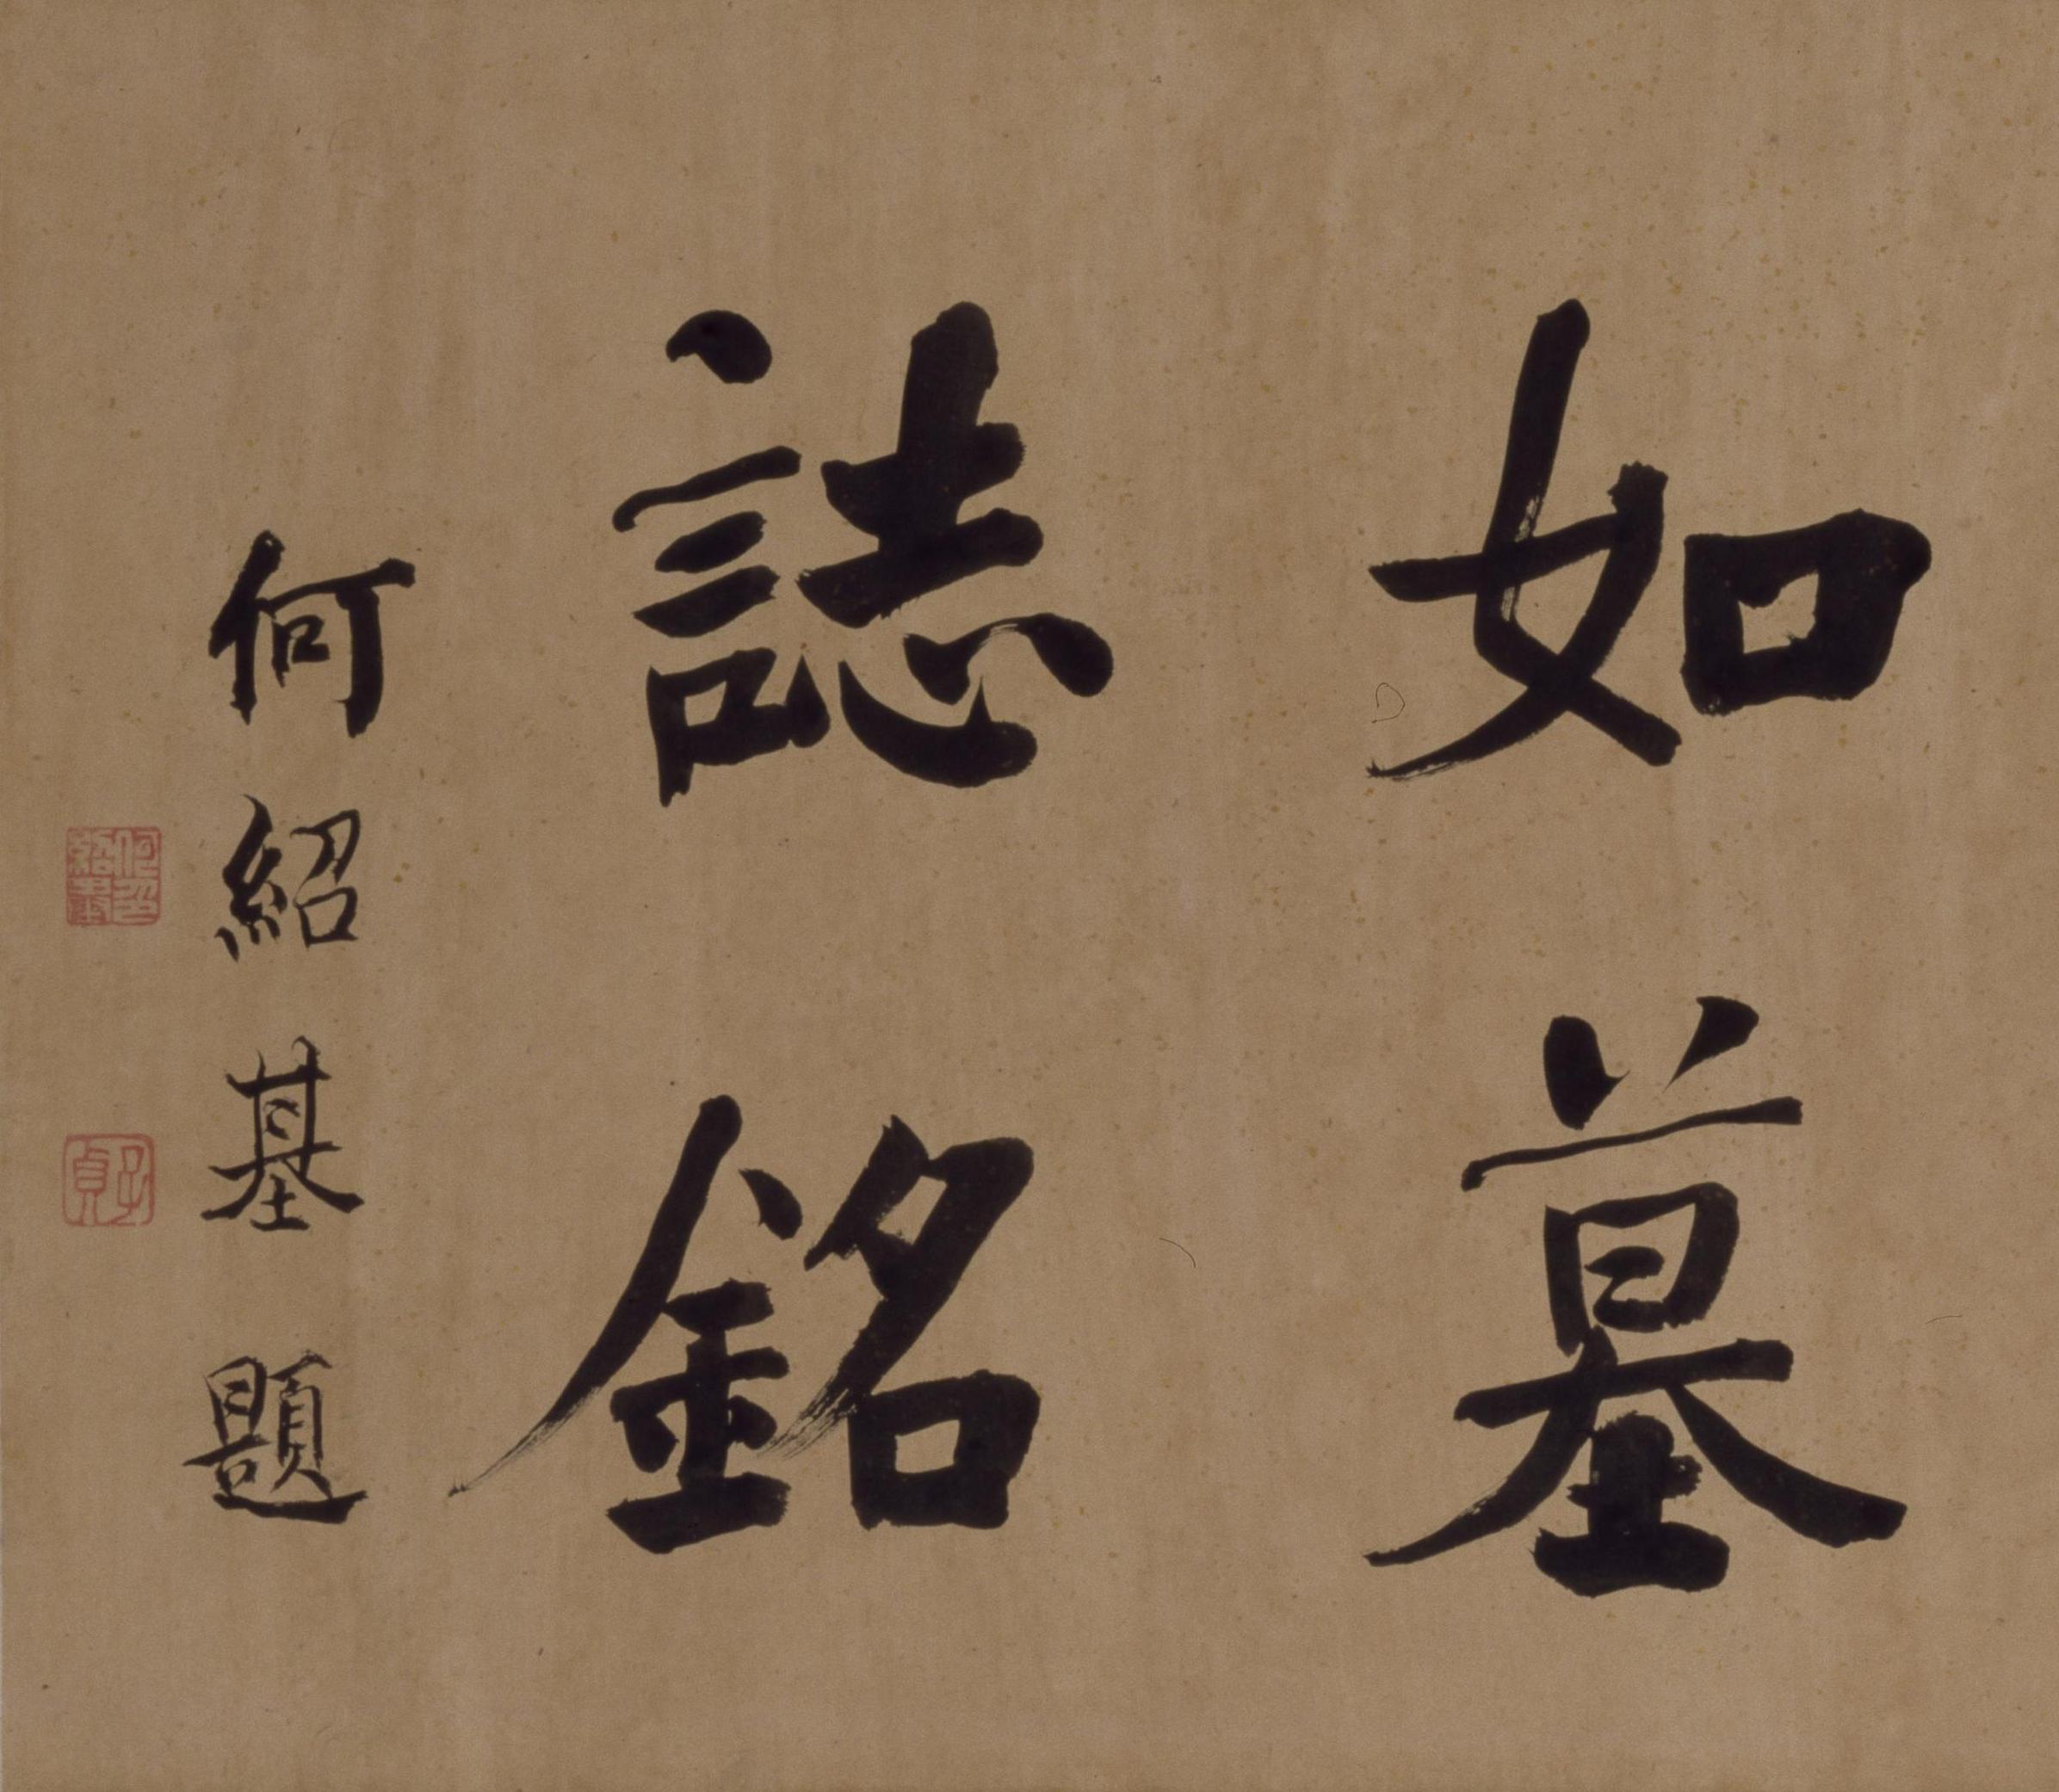 如墓
誌銘
何紹基題
何紹基印
子貞